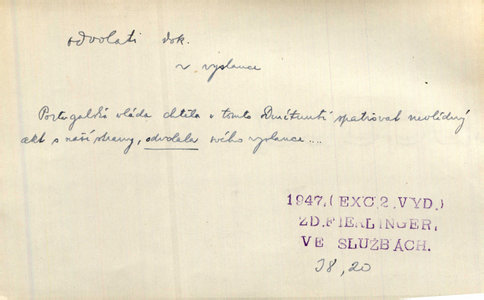 odvolati dok.
v vyslance
Portugalská vláda chtěla v tomto spatřovat nevlídný
akt s naší strany, odvolala svého vyslance....
1947.(EXC.2.VYD.)
ZD.FIERLINGER,
VE SLUŽBÁCH.
I8,20